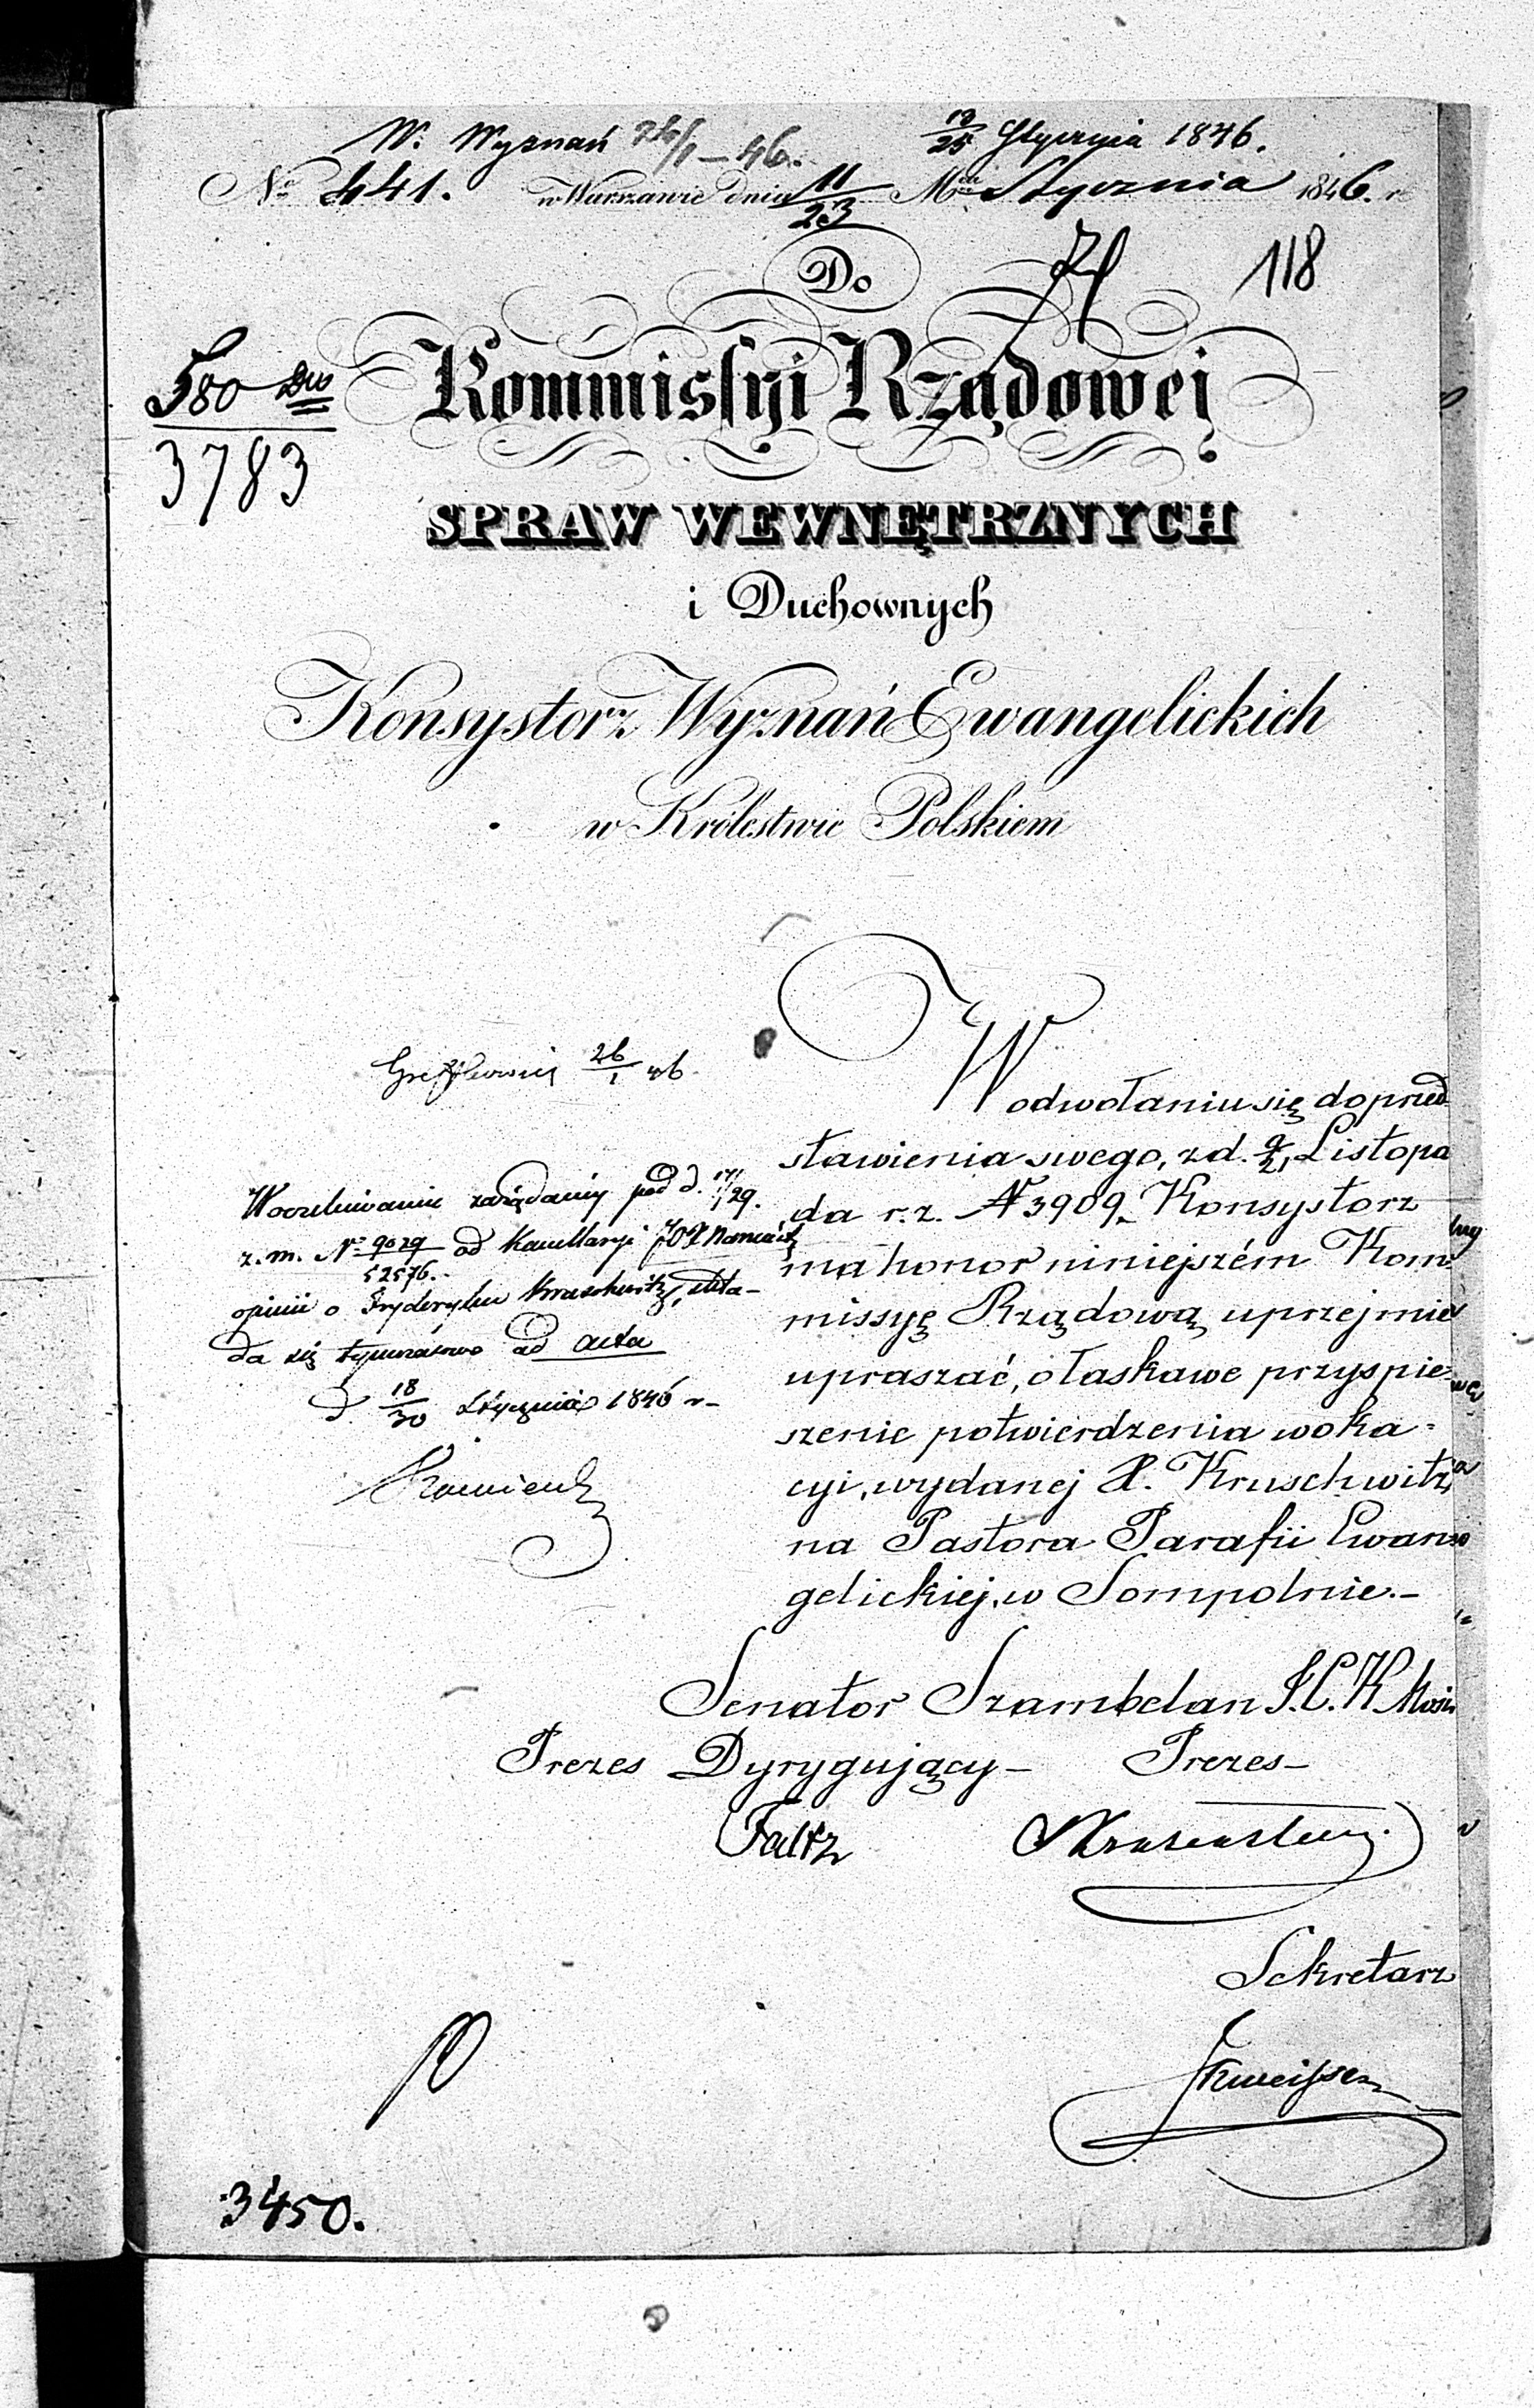 W. Wyznań 26/1 – 46.
13/25 Stycznia 1846.
No 441. w Warszawie dnia 11/23 Mca Stycznia 1846. r
Do
118
580
3783
Kommissyi Rządowej
SPRAW WEWNĘTRZNYCH
i Duchownych
Konsystorz Wyznań Ewangelickich
w Królestwie Polskiem
W odwołaniu się do przed
stawienia swego, z d. 9/21 Listopa
da r. z. N 3909 Konsystorz
ma honor niniejszém Kom
missyę Rządową uprzejmie
upraszać, o łaskawe przyspie-
szenie potwierdzenia woka-
cyi, wydanej X. Kruschwitz,
na Pastora Parafii Ewan
gelickiej, w Sompolnie.–
26/1 46.
W oczekiwaniu zażądaniy pod d. 17/29.
z. m. No 9029/52576. od Kancellaryi JOX Namiest
opinii o Fryderyku Kruschwitz, skła-
da się tymczasowo ad acta
d. 18/30 Stycznia 1846 r–
Senator Szambelan J.C.K. Mości
Prezes Dyrygujący – Prezes –
Faltz
Sekretarz
3450.